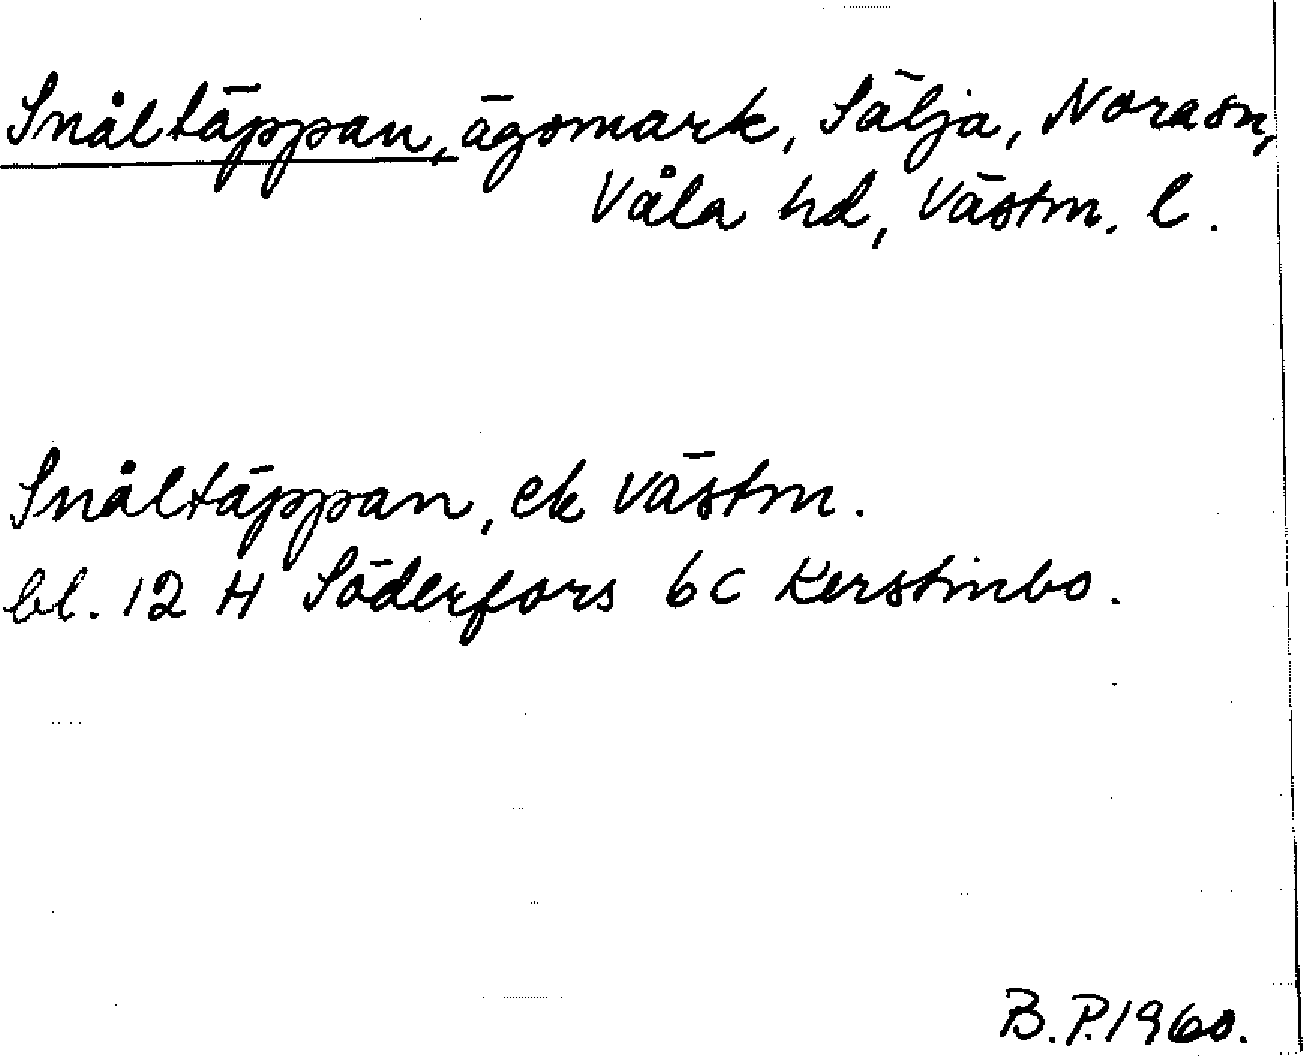 Snåltäppan, ägomark, Sälja, Nora sn,
Våla hd, Västm. l.
Snåltäppan, ek Västm.
bl. 12 H Söderfors 6c Kerstinbo.
B.P. 1960.